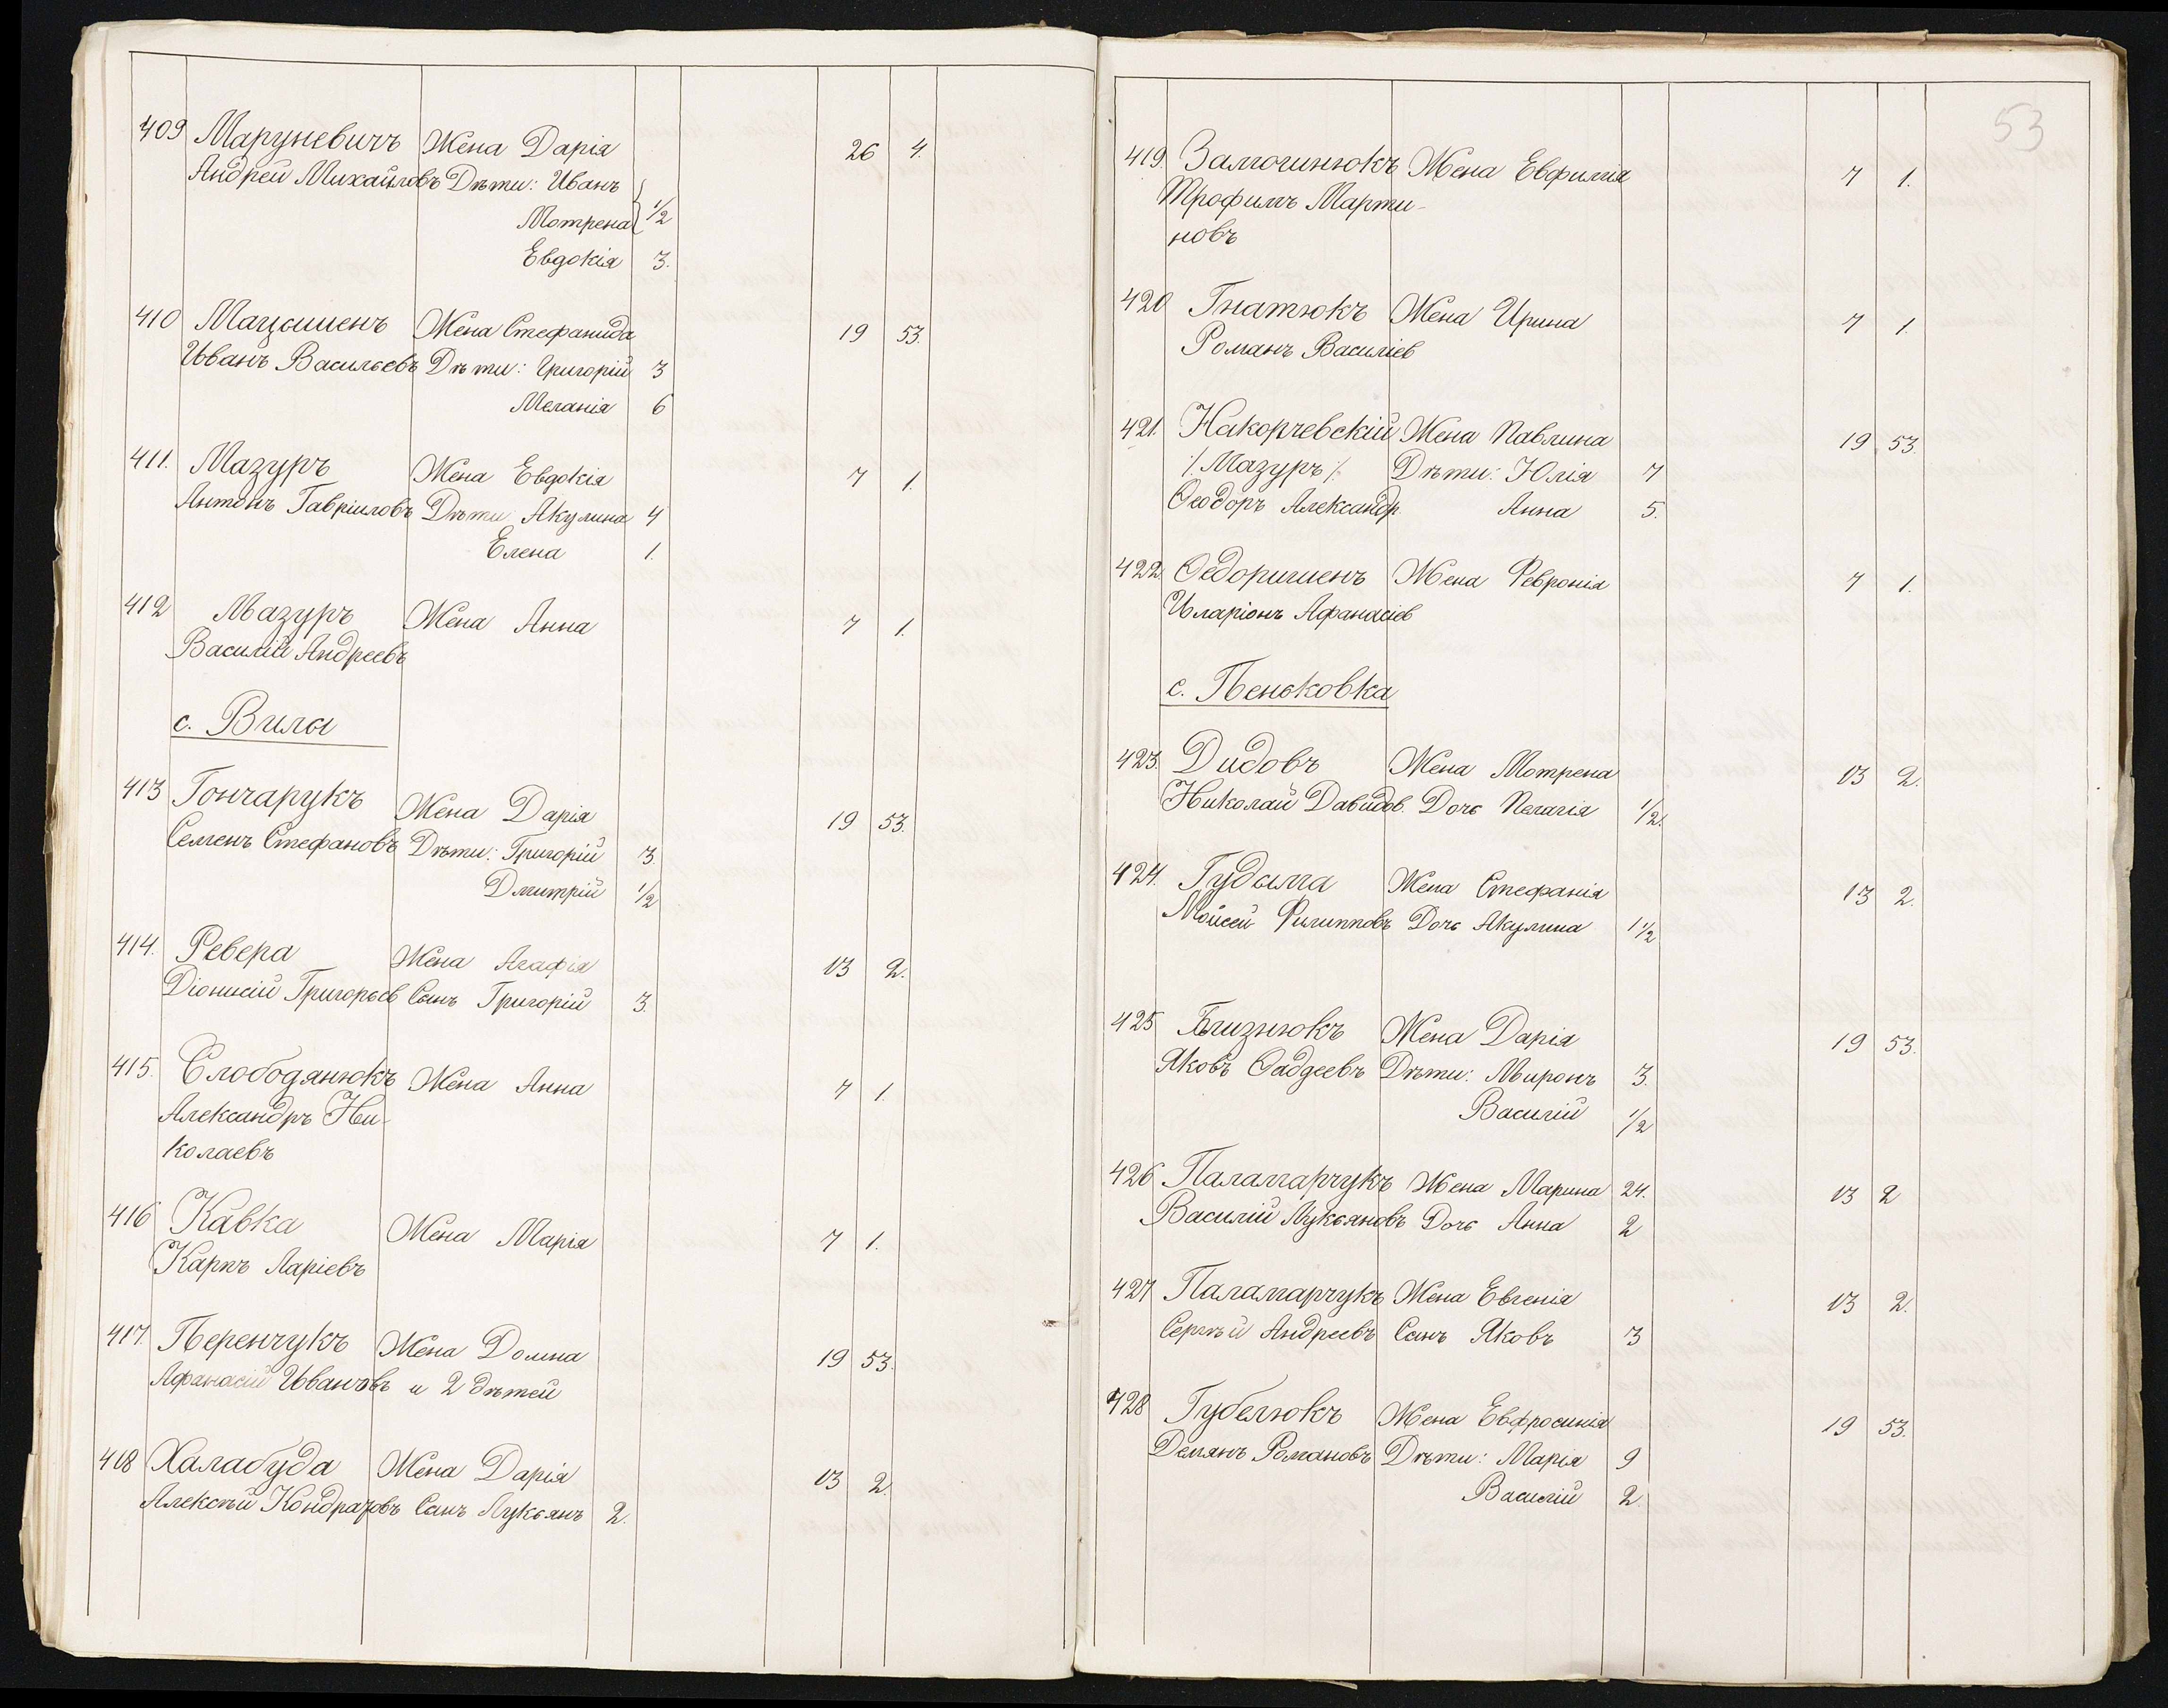 409 Маруневичъ Жена Дарія 26 4.
Андрей Михайловъ Дѣти: Иванъ
Мотрена 1/2
Евдокія 3.
410 Мацишенъ Жена Стефанида 19 53.
Иванъ Васильевъ Дѣти: Григорій 3
Меланія 6
411. Мазуръ Жена Евдокія 7 1.
Антонъ Гавріиловъ Дѣти Акулина 4
Елена 1.
412 Мазуръ Жена Анна 7 1.
Василій Андреевъ
с. Вила
413 Гончарукъ Жена Дарія 19 53.
Семенъ Стефановъ Дѣти: Григорій 3.
Дмитрій 1/2
414. Ревера Жена Агафія 13 2.
Діонисій Григорьев Сынъ Григорій 3.
415. Слободянюкъ Жена Анна 7 1.
Александръ Ни-
колаевъ
416 Кавка Жена Марія 7 1.
Карпъ Ларіевъ
417. Перенчукъ Жена Домна 19 53.
Афанасій Ивановъ и 2 дѣтей
418 Халабуда Жена Дарія 13 2.
Алексѣй Кондратовъ Сынъ Лукьянъ 2.
53
419. Замогинюкъ Жена Евфимія 7 1.
Трофимъ Марти-
новъ
420 Гнатюкъ Жена Ирина 7 1.
Романъ Василіев
421. Накорчевскій Жена Павлина 19 53.
/. Мазуръ /. Дѣти: Юлія 7
Ѳеодоръ Александр. Анна 5.
422. Ѳедоришенъ Жена Февронія 7 1.
Иларіонъ Афанасіев
с. Пеньковка
423. Дидовъ Жена Мотрена 13 2.
Николай Давидов. Дочь Пелагія 1/2.
424. Гудыма Жена Стефанія 13 2.
Мойсей Филипповъ Дочь Акулина 1 1/2
425 Близнюкъ Жена Дарія 19 53.
Яковъ Ѳаддеевъ Дѣти: Миронъ 3.
Василій 1/2
426 Паламарчукъ Жена Марина 24. 13 2
Василій Лукьяновъ Дочь Анна 2
427 Паламарчукъ Жена Евгенія 13 2.
Сергѣй Андреевъ Сынъ Яковъ 3
428 Губелюкъ Жена Евфросинія 19 53.
Демянъ Романовъ Дѣти: Марія 9
Василій 2.